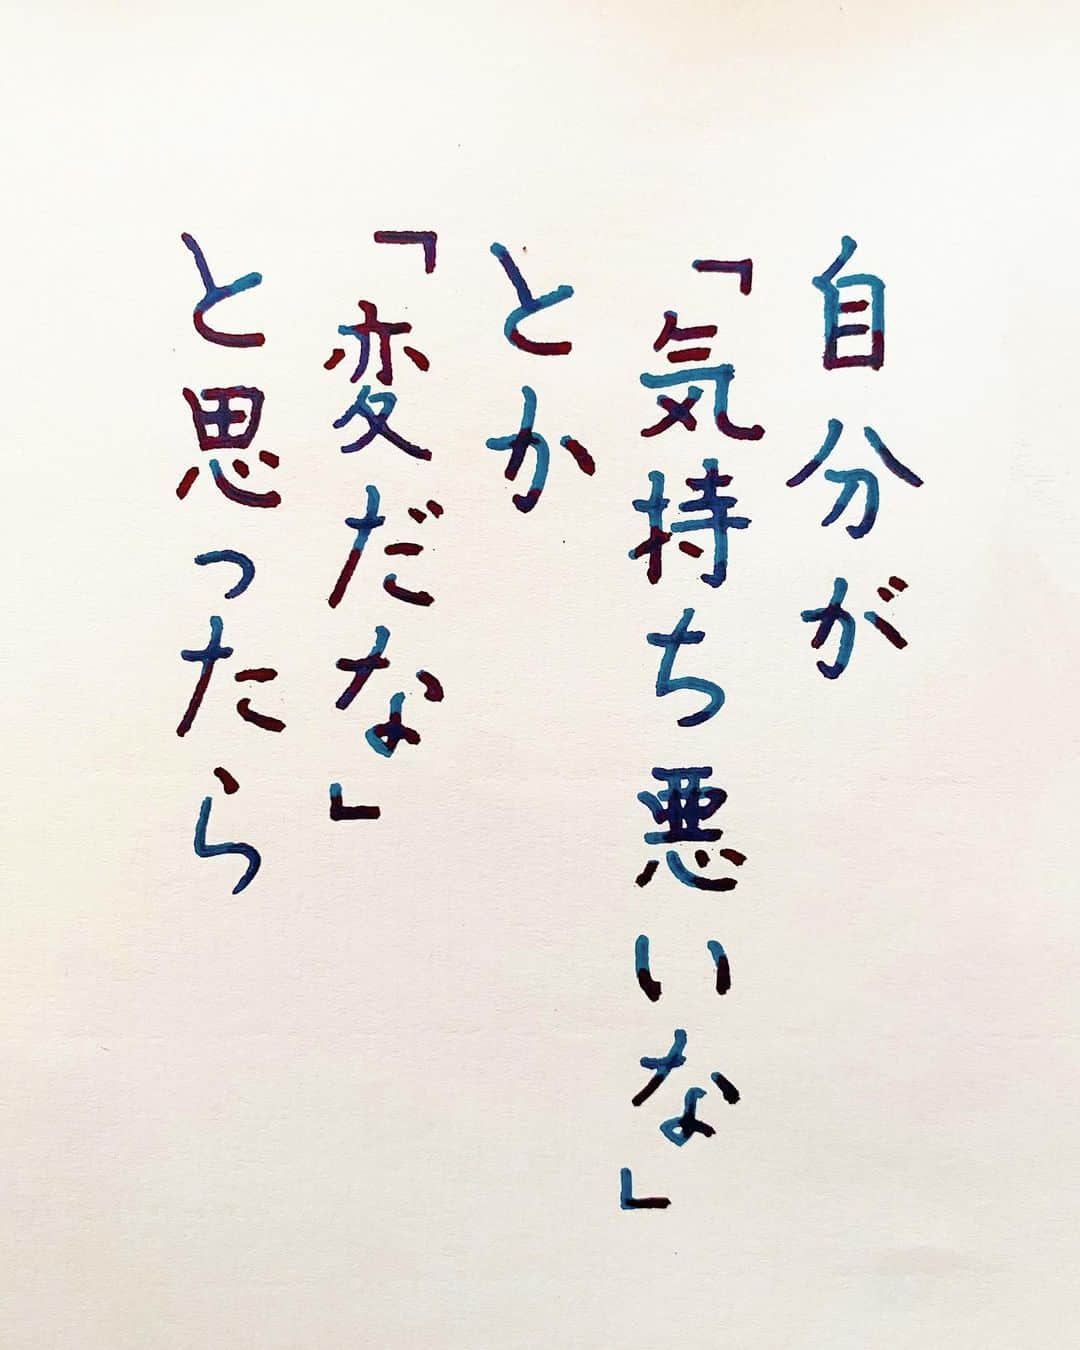 自分が
「気持ち悪いな」
とか
「変だな」
と思ったら